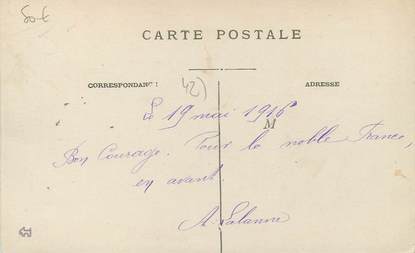 50 €
CARTE POSTALE
CORRESPONDANCE
ADRESSE
42)
Le 19 mai 1916
M
Bon Courage. Pour la noble France,
en avant!
A. Lalanne